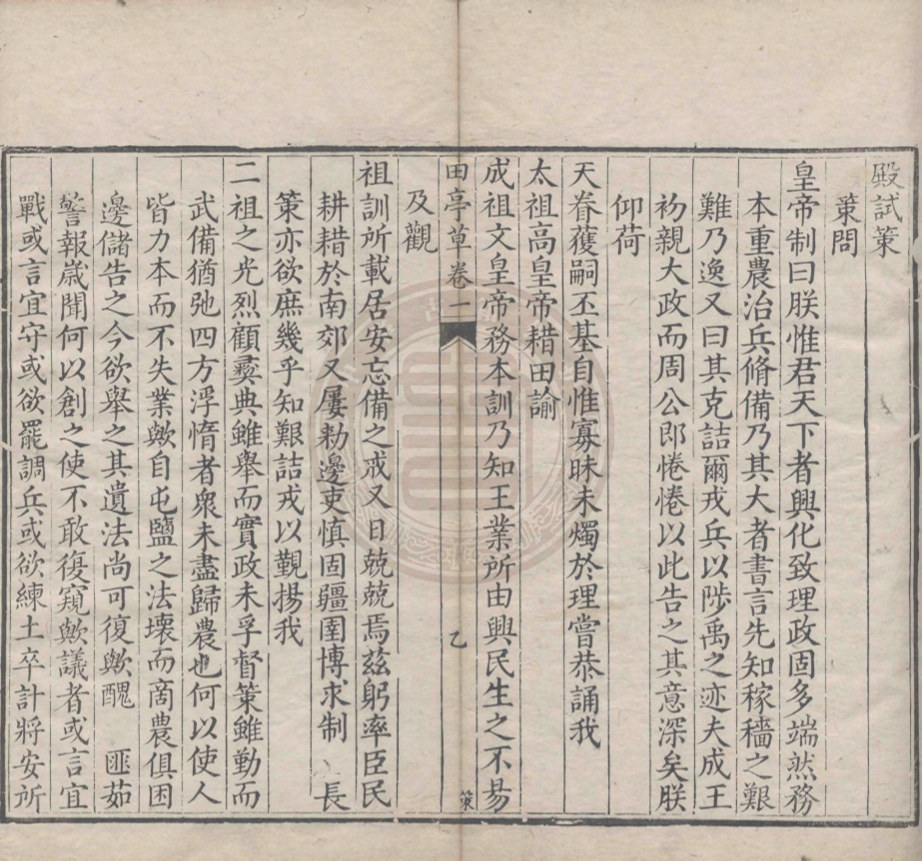 殿試策
策問
皇帝制曰朕惟君天下者興化致理政固多端然務
本重農治兵脩備乃其大者書言先知稼穡之艱
難乃逸又曰其克詰爾戎兵以陟禹之迹夫成王
初親大政而周公郎惓惓以此告之其意深矣朕
仰荷
天眷獲嗣丕基自惟寡昧未燭於理嘗恭誦我
太祖高皇帝耤田諭
成祖文皇帝務本訓乃知王業所由興民生之不易
田亭草卷一
乙
策
及觀
祖訓所載居安忘備之戒又日兢兢焉茲躬率臣民
耕耤於南郊又屢勅邊吏慎固疆圉博求制 長
策亦欲庶幾乎知艱詰戎以覲揚我
二祖之光烈顧彝典雖舉而實政未孚督策雖勤而
武備猶弛四方浮惰者衆未盡歸農也何以使人
皆力本而不失業歟自屯鹽之法壞而商農俱困
邊儲告之今欲舉之其遺法尚可復歟醜 匪茹
警報歲聞何以創之使不敢復窺歟議者或言宜
戰或言宜守或欲罷調兵或欲練土卒計將安所